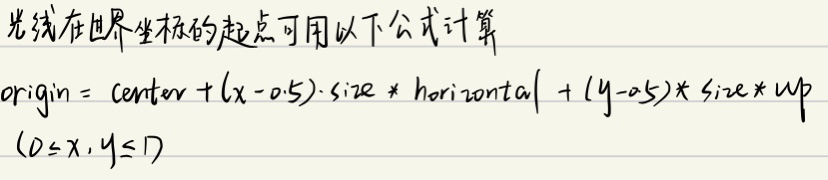 光线在世界坐标的起点可用以下公式计算
origin = center + (x - 0.5)·size * horizontal + (y-0.5)* size * up
(0≤x,y≤1)